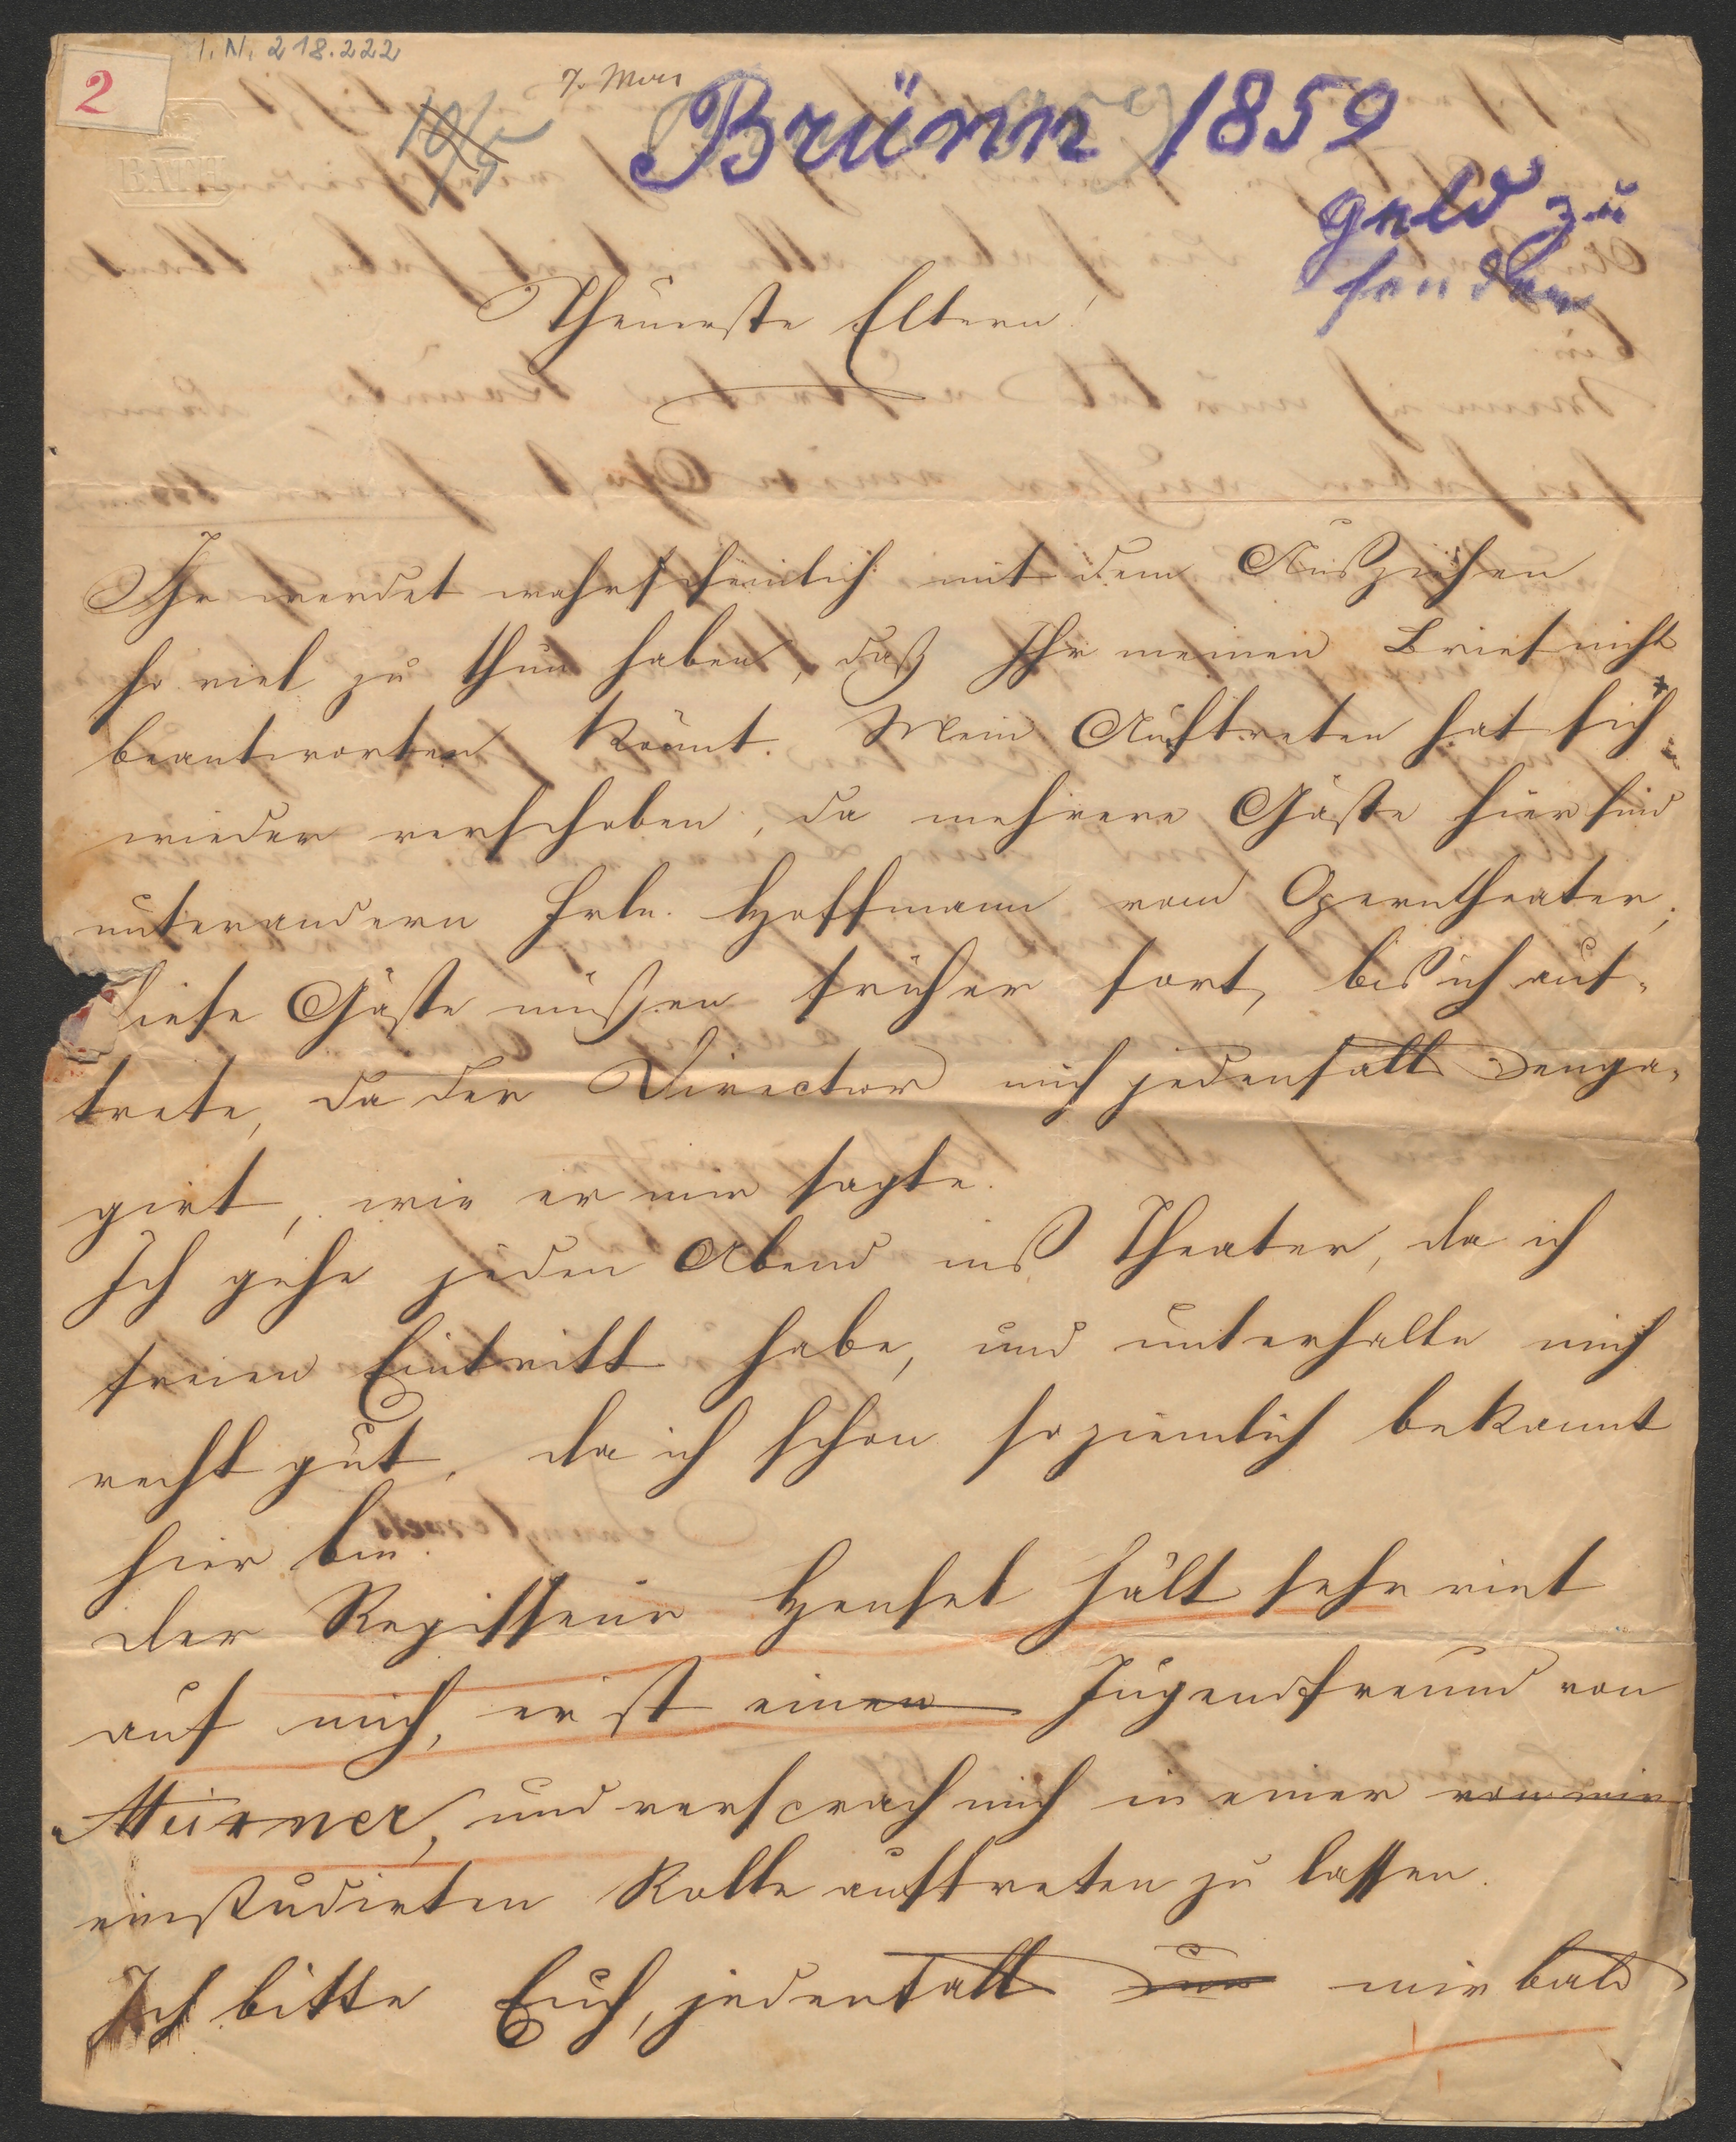 I. N. 218.222
2
BATH
Brünn 1859
Geld zu
senden
Theuerste Eltern!
Ihr werdet wahrscheinlich mit dem Ausziehen
so viel zu thun haben, daß Ihr meinen Brief nicht
beantworten könnt. Mein Auftreten hat sich
wieder verschoben, da mehrere Gäste hier sind
unterandern Frln. Hoffmann vom Operntheater,
diese Gäste müßen früher fort, bis ich auf-
trete, da der Director mich jedenfalls enga-
girt, wie er mir sagte.
Ich gehe jeden Abend ins Theater, da ich
freien Eintritt habe, und unterhalte mich
recht gut, da ich schon so ziemlich bekannt
hier bin.
der Regisseur Hensel hält sehr viel
auf mich, er ist einen Jugendfreund von
und versprach mich in einer von mir
einstudirten Rolle auftreten zu lassen.
Ich bitte Euch, jedenfalls mir bald